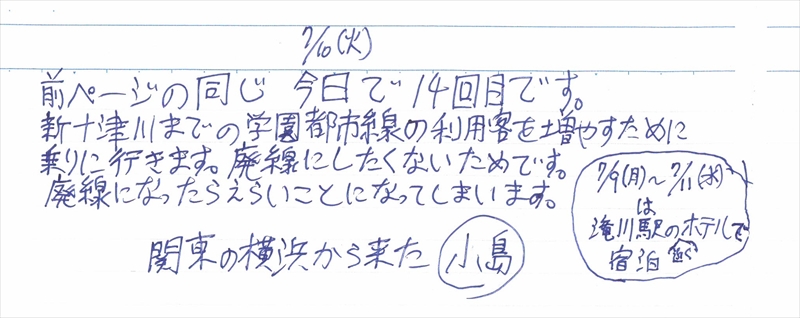 7/10(火)
前ページの同じ 今日で14回目です。
新十津川までの学園都市線の利用客を増やすために
乗りに行きます。廃線にしたくないためです。
廃線になったらえらいことになってしまいます。
関東の横浜から来た 小島
7/9(月)～7/11(水)
は
滝川駅のホテルで
宿泊